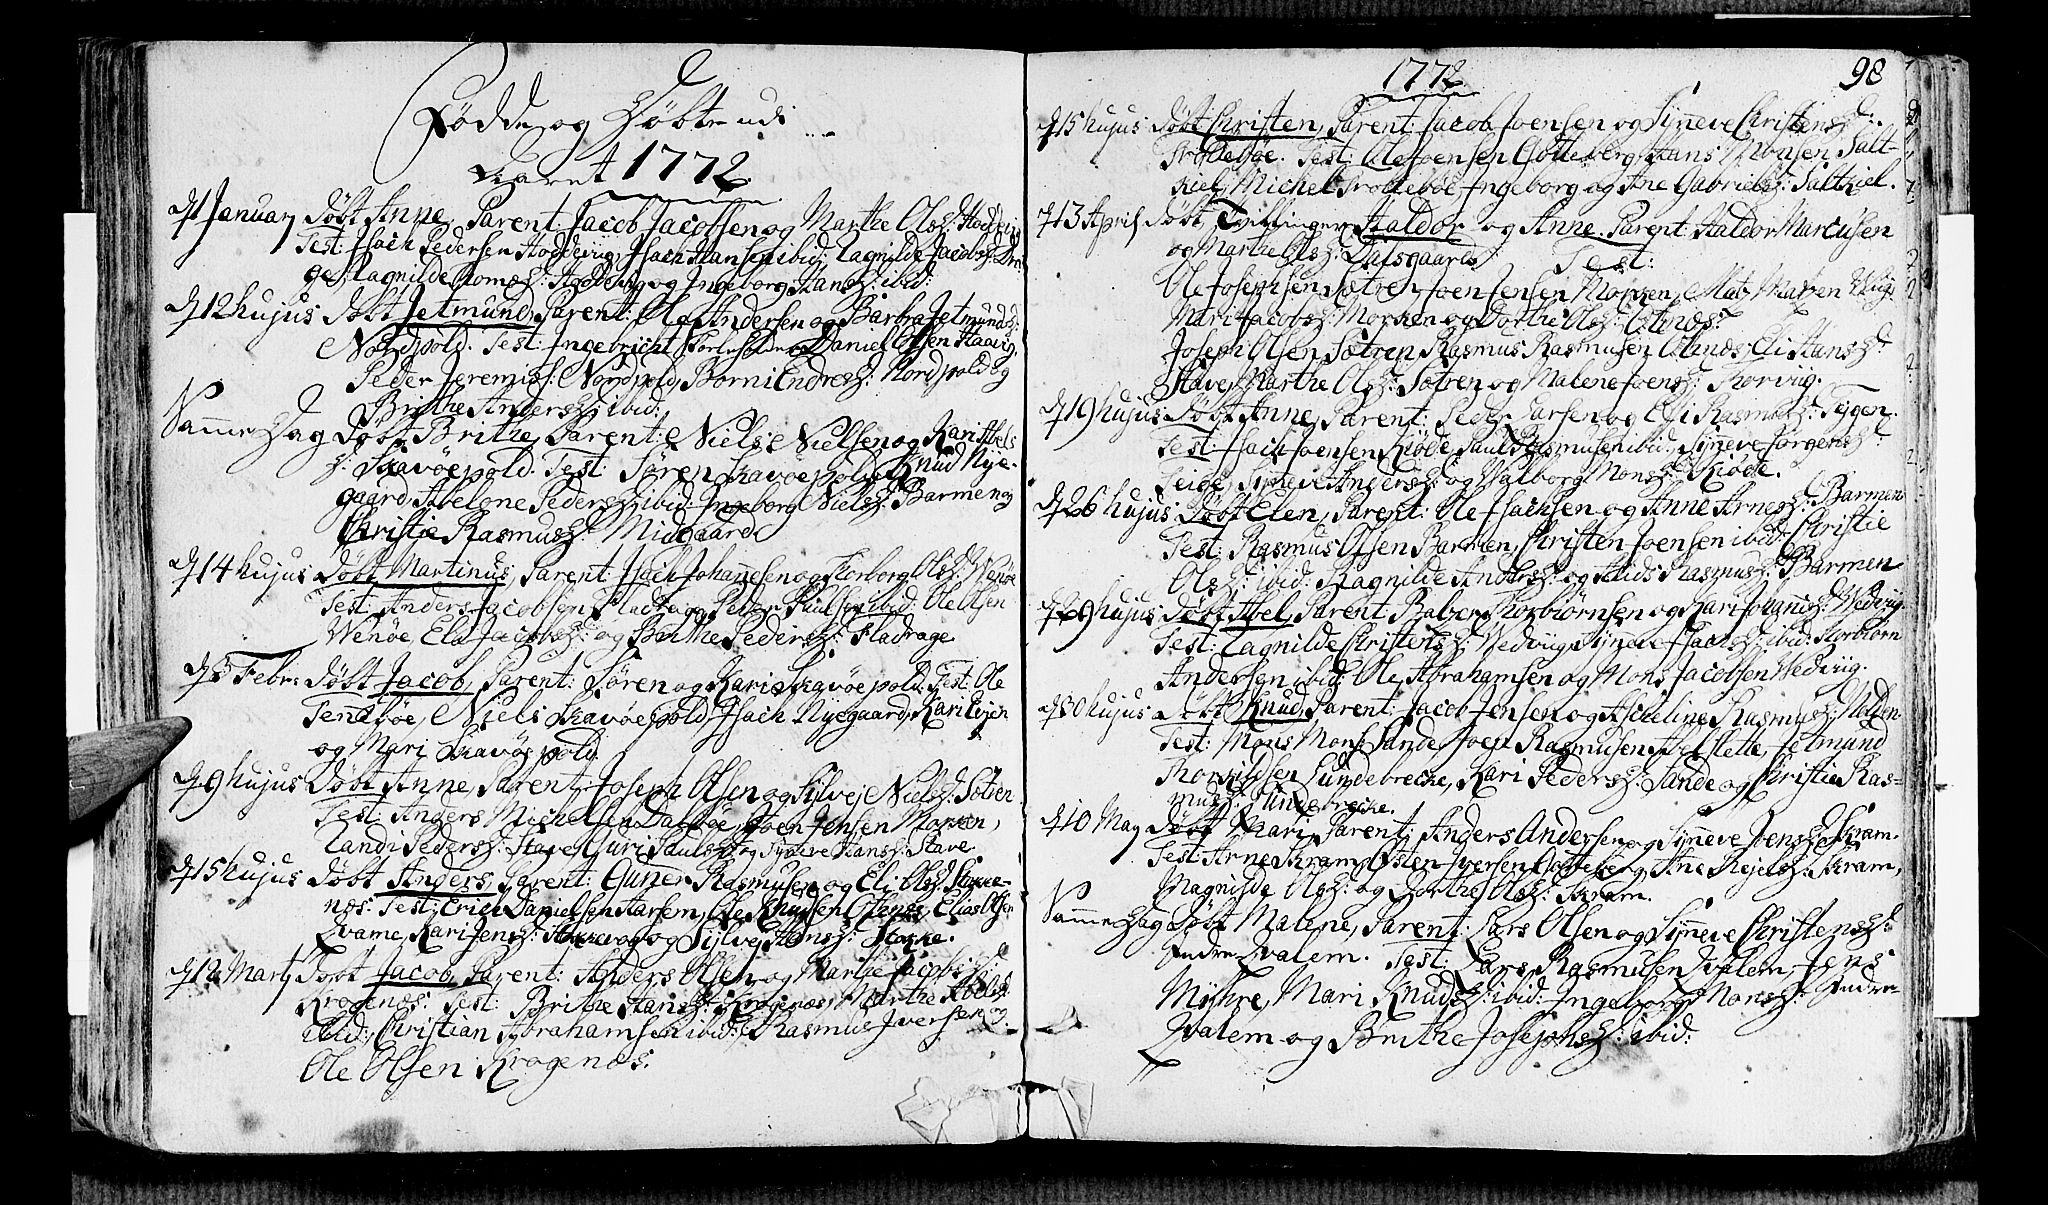 Fødde og Døbte udi
Aaret 1772
D. 1 Januarj Døbt Anne, Parent: Jacob Jacobsen og Marthe Olsd: Hoddevig
Test: Isach Pedersen Hoddevig, Isach Hansen ibid: Ragnilde Jacobsd:
ge, Ragnilde Thomæd: Hoddevig og Ingeborg Hansd: ibid:
D. 12 hujus Døbt Jetmund, Parent: Ole Andersen og Barbra Jetmundsd:
Nordpold. Test: Ingebricht Daniel Olsen Haavig,
Peder Jeremies: Nordpold, Borni Endresd: Nordpold og
Brithe Andersd: ibid:
Samme Dag Døbt Brithe, Parent: Niels Nielsen og Kari Abels
d: Skavøepold. Test: Søren Skavøepold, Knud Nye-
gaard, Abelone Pedersd: ibid: Ingeborg Nielsd: Barmen og
Christie Rasmusd: Midgaard
D. 14 hujus Døbt Martinus, Parent: Isach Johannesen og Torborg Olsd: Wenøe
Test: Anders Jacobsen Fladrage, Peder Paulsen ibid: Ole Olsen
Wenøe, Els Jacobsd: og Brithe Pedersd: Fladrage
D. 5 Febr: Døbt Jacob, Parent: Søren og Kari Skavøepold. Test: Ole
Teneböe, Niels Skavøepold, Isach Nyegaard, Kari Eyen
og Mari Skavøepold.
D. 9 hujus Døbt Anne, Parent: Joseph Olsen og Sylvej Nielsd: Sætren
Test: Anders Michelsen Dalböe, Joen Jensen Morken,
Randi Pedersd: Stave, Guri Paulsd: og Synneve Hansd: Stave
D. 15 hujus Døbt Anders, Parent: Guner Rasmusen og Eli Olsd: Stokke-
næs. Test: Erich Danielsen Aarsem, Ole Knudsen Otenes, Elias Olsen
Qvame, Kari Jensd: Stokkevog og Sylvej Hansd: Stokke.
D. 12 Martj Døbt Jacob, Parent: Anders Olsen og Marthe Jacobsd:
Krogenæs. Test: Brithe Hansd: Krogenæs, Marthe Abelsd:
ibid: Christian Abrahamsen ibid: Rasmus Iversen og
Ole Olsen Krogenæs.
1772
98
D. 15 hujus Døbt Christen, Parent: Jacob Joensen og Synneve Christensd:
Frødebøe. Test: Ole Joensen Gotteberg, Hans Monsen Salt-
kiel, Michel Frødeböe, Ingeborg og Ane Gabrielsd: Saltkiel.
D. 13 April Døbt Tvillinger Haldor og Anne, Parent: Haldor Marcusen
og Marthe Olsd: Dalsgaard Test:
Ole Josephsen Sætren, Joen Jensen Morken, Mats Matsen
Mari Jacobsd: Morken og Dorthe Olsd: Otnæs.
Joseph Olsen Sætren, Rasmus Rasmusen Otnæs, Eli Hansd:
Stave, Marthe Olsd: Sætren og Malene Joensd: Korvig.
D. 19 hujus Døbt Anne, Parent: Peder Larsen og Eli Rasmusd: Tejgen.
Test: Isach Joensen Kiöde, Paul Rasmusen ibid: Synneve Jørgensd:
Teige, Synneve Andersd: og Walborg Monsd: Kiøde.
D. 26 hujus Døbt Elen, Parent: Ole Isachsen og Anne Arnesd: Barmen
Test: Rasmus Olsen Barmen, Christen Joensen ibid: Christie
Olsd: ibid: Ragnilde Andersd: og Alids Rasmusd: Barmen
D. 29 hujus Døbt Abel, Parent: Balzer Thorbiörnsen og Kari Johannisd: Wedvig.
Test: Ragnilde Christensd: Wedvig, Synneve Isachsd: ibid: Thorbiørn
Andersen ibid: Ole Abrahamsen og Mons Jacobsen Wedvig.
D. 30 hujus Døbt Knud, Parent: Jacob Jensen og Ascheline Rasmusd: Molden
Test: Mons Monsd: Sande, Joen Rasmusen Flette, Jetmund
Thorvildsen Lundebrecke, Kari Pedersd: Sande og Christie Ras-
musd: Lundebrecke.
D. 10 May Døbt Mari, Parent: Anders Andersen og Synneve Joensd: Skram.
Test: Arne Skram, Osten Iversen Gotteberg, Ane Rejelsd: Skram,
Magnilde Olsd: og Dorthe Olsd: Skram.
Samme Dag Døbt Malene, Parent: Lars Olsen og Synneve Christensd:
Indre-Dvalem. Test: Lars Rasmusen Dvalem, Jens
Myhre, Mari Knudsd: ibid: Ingeborg Monsd: Indre-
Dvalem og Brithe Josephsd: ibid: